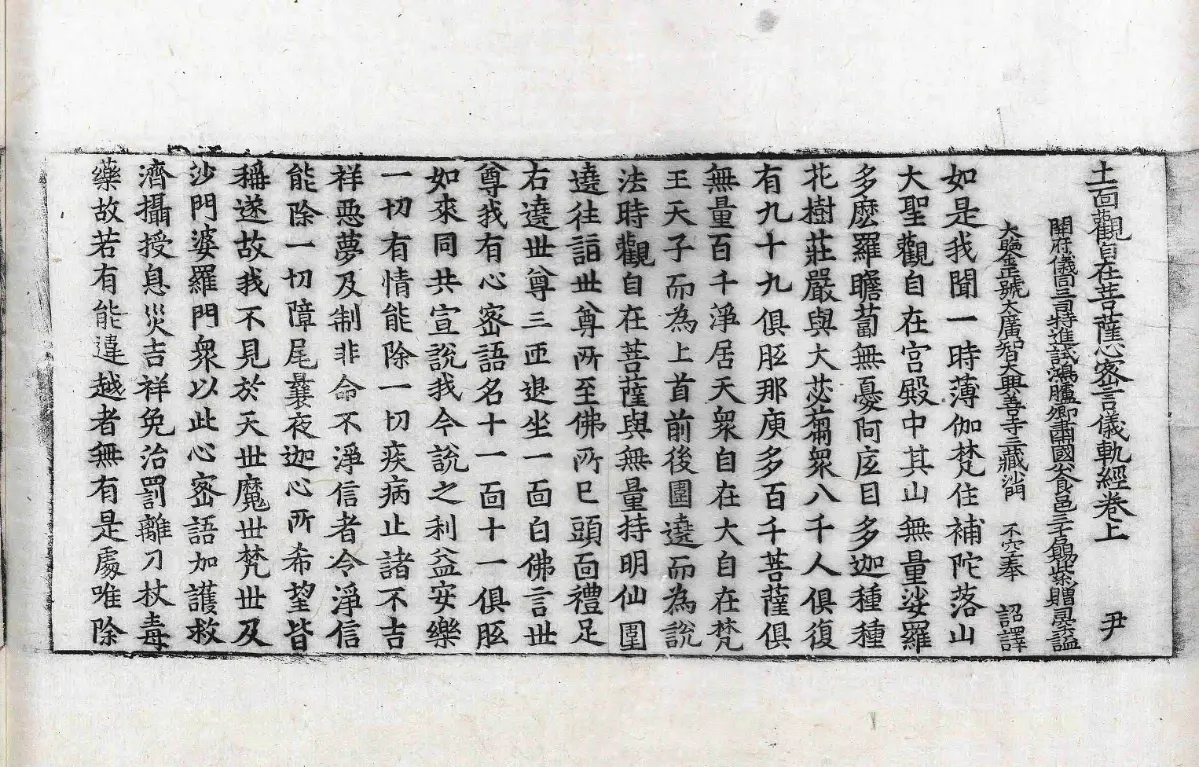 十一面觀自在菩薩心密言儀軌經卷上 尹
開府儀同三司特進試鴻臚卿肅國公食邑三千戶賜紫贈司空謚
大鑒正號大廣智大興善寺三藏沙門 不空奉 詔譯
如是我聞一時薄伽梵住補陀落山
大聖觀自在宮殿中其山無量娑羅
多麽羅瞻蔔無憂阿底目多迦種種
花樹莊嚴與大苾芻眾八千人俱復
有九十九俱胝那庾多百千菩薩俱
無量百千淨居天眾自在大自在梵
王天子而為上首前後圍遶而為說
法時觀自在菩薩與無量持明仙圍
遶往詣世尊所至佛所已頭面禮足
右遶世尊三匝退坐一面白佛言世
尊我有心密語名十一面十一俱胝
如來同共宣說我今說之利益安樂
一切有情能除一切疾病止諸不吉
祥惡夢及制非命不淨信者令淨信
能除一切障尾曩夜迦心所希望皆
稱遂故我不見於天世魔世梵世及
沙門婆羅門眾以此心密語加護救
濟攝授息災吉祥免治罰離刀杖毒
藥故若有能違越者無有是處唯除